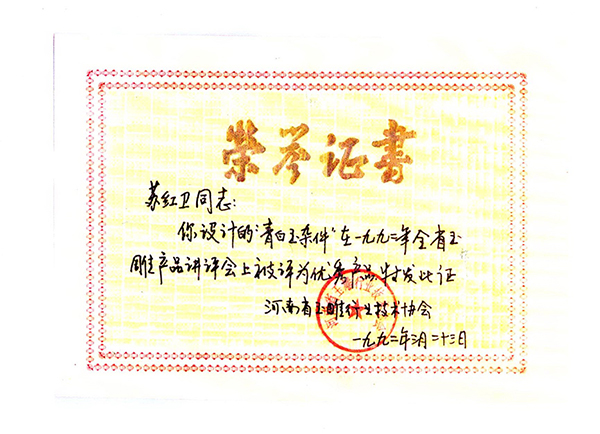 荣誉证书
苏红卫同志:
你设计的"青白玉杂件"在一九九二年全省玉
雕产品讲评会上被评为优秀产品特发此证
河南省玉雕行业技术协会
一九九二年三月二十三日